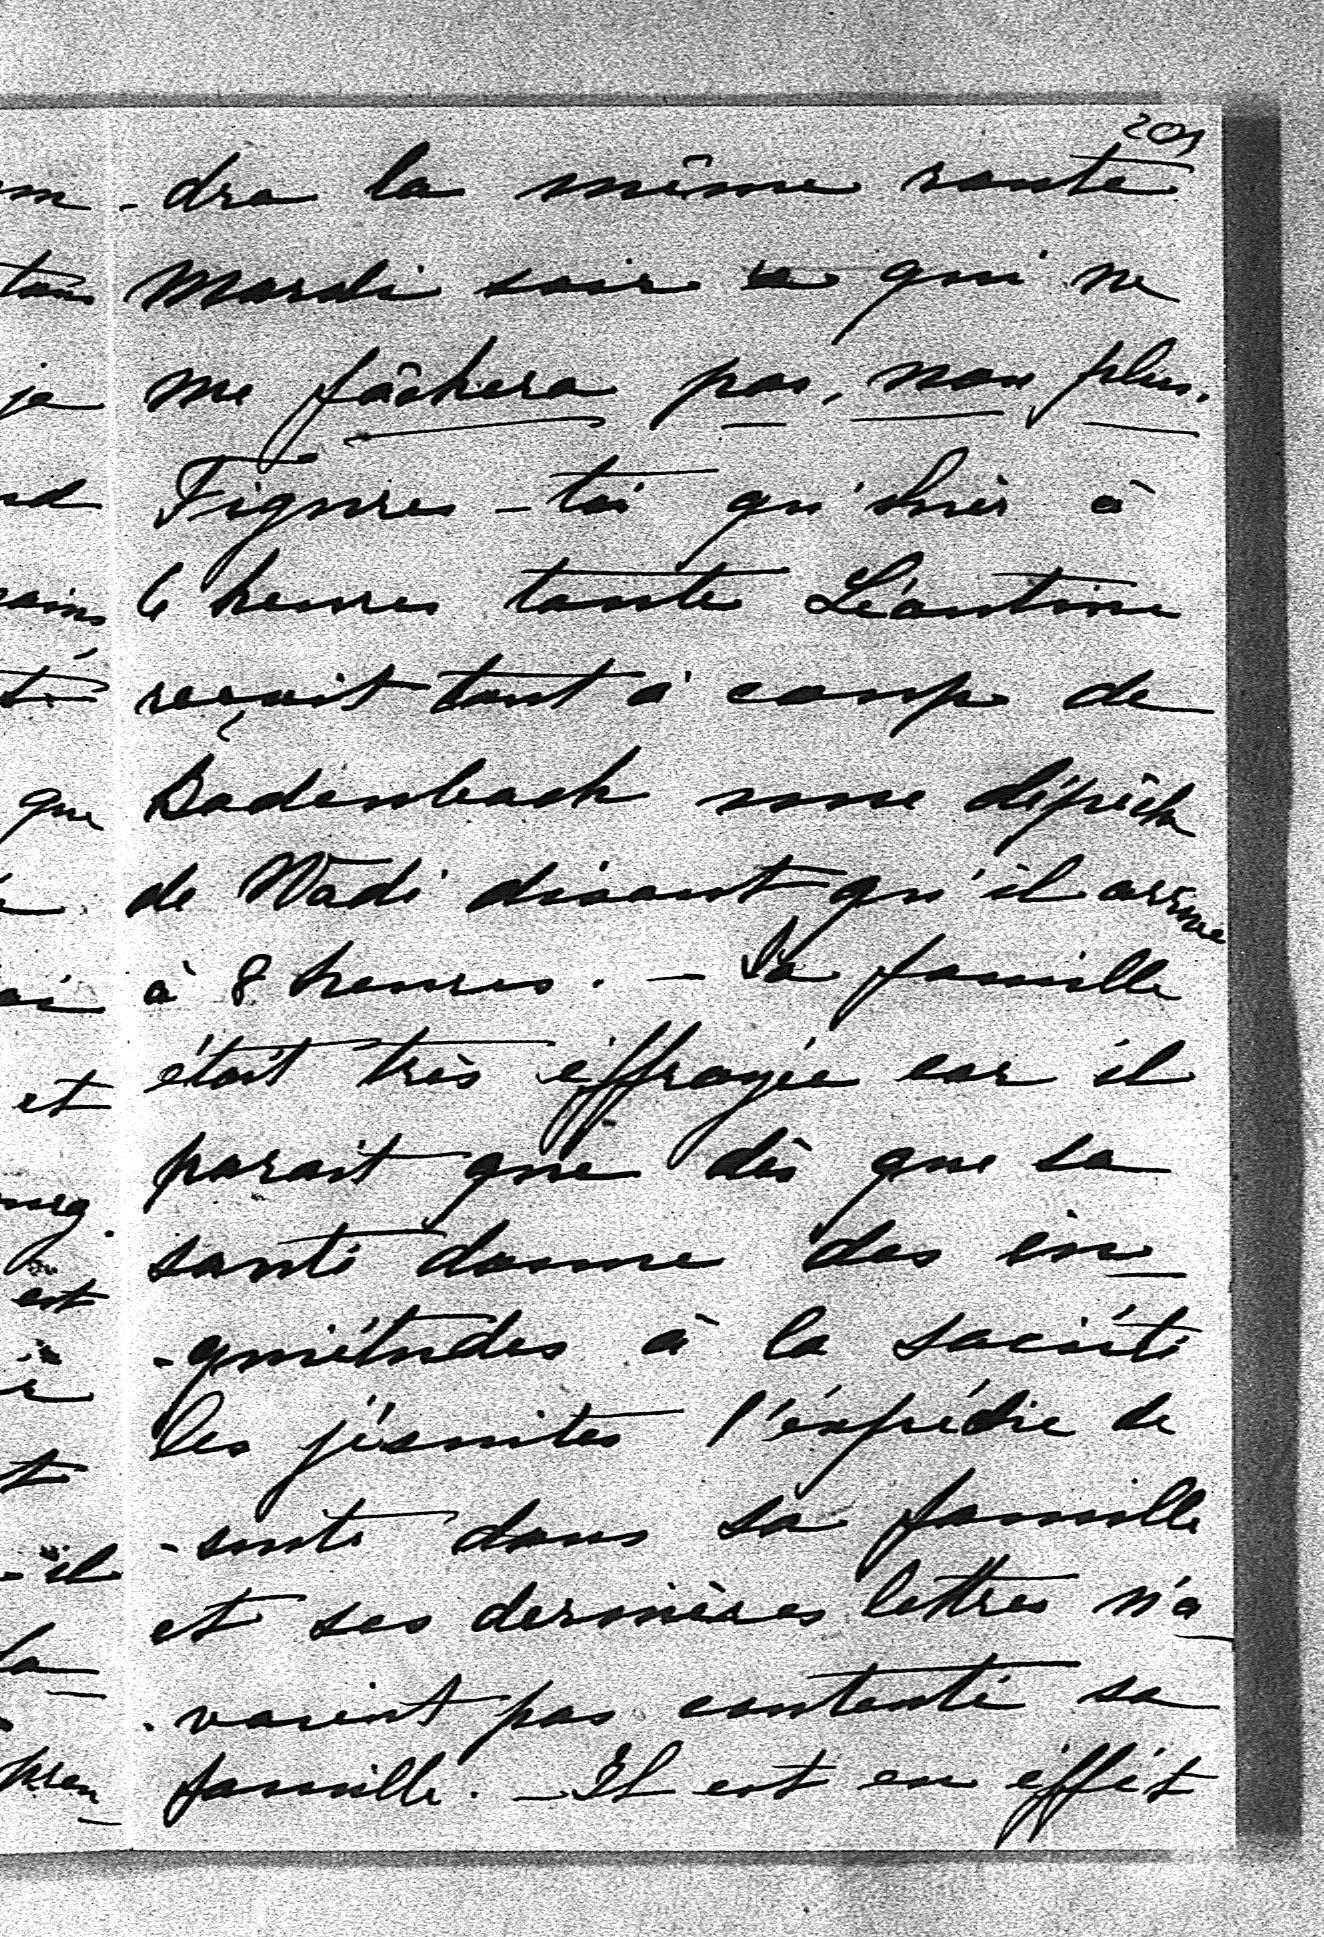 201
-dra la même route
Mardi soir ce qui ne
me fâchera pas, non plus.
Figures-toi qu'hièr à
6 heures tante Léontine
reçoit tout à coup de
Bodenbach une dépêche
de Wadi disant qu'il arrive
à 8 heures. - Sa famille
était très éffrayée car il
parait que dès que sa
santé donne des in
-quiétudes à la société
les jésuites l'éxpédie de
-suite dans sa famille
et ses dernières lettres n'a
-vaient pas contenté sa
famille. - Il est en éffét